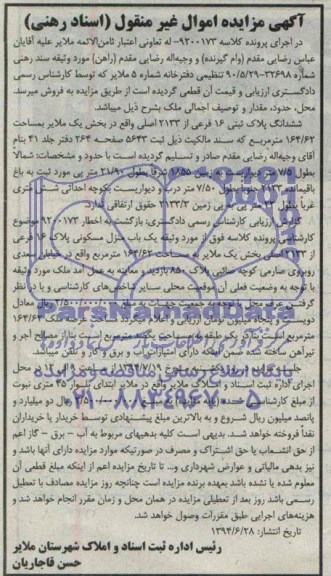 آگهی مزایده اموال غیر منقول (اسناد رهنی)
در اجرای پرونده کلاسه ۹۲۰۰۱۷۳- له تعاونی اعتبار ثامن‌الائمه ملایر علیه آقایان
عباس رضایی مقدم (وام گیرنده) و وجیه‌اله رضایی مقدم (راهن) مورد وثیقه سند رهنی
شماره ۳۲۶۹۸-۹۰/۵/۲۹ تنظیمی دفترخانه شماره ۵ ملایر که توسط کارشناس رسمی
دادگستری ارزیابی و قیمت آن قطعی گردیده است از طریق مزایده به فروش میرسد.
محل، حدود، مقدار و توصیف اجمالی ملک بشرح ذیل میباشد.
ششدانگ پلاک ثبتی ۱۶ فرعی از ۲۱۳۳ اصلی واقع در بخش یک ملایر بمساحت
۱۶۴/۶۲ مترمربع که سند مالکیت ذیل ثبت ۵۶۴۳ صفحه ۲۶۴ دفتر جلد ۴۱ بنام
آقای وجیه‌اله رضایی مقدم صادر و تسلیم گردیده است با حدود و مشخصات: شمالاً
بطول ۷/۵ شرقاً بطول ۲۱/۹۰ متر پی مورد ثبت به باغ
باقیمانده ۲۱۳۳ جنوباً بطول ۷/۵۰ متر درب و دیواریست بکوچه احداثی ششمتری
غرباً بطول زمین ۲۱۳۳/۲ حقوق ارتفاقی ندارد.
گزارش ارزیابی کارشناس رسمی دادگستری: بازگشت به اخطار ۹۲۰۰۱۷۳ موضوع
کارشناسی پرونده کلاسه فوق در مورد وثیقه یک باب منزل مسکونی پلاک ۱۶ فرعی
از ۲۱۳۳ اصلی بخش یک ملایر به مساحت ۱۶۴/۶۲ مترمربع واقع در ملایر سعدی
روبروی صارمی کوچه پلاک ۸۵۰ بازدید و معاینه به عمل آمد ملک مورد وثیقه
با توجه به وضعیت فعلی آن موقعیت محلی سایر شاخص‌های کارشناسی و با در نظر
گرفتن ریال معادل
دویست و پنجاه میلیون تومان ارزیابی و اعلام میگردد ۱۶۴/۶۲
مترمربع است بنا یکصد مترمربع است بنا از مصالح آجر و
تیرآهن ساخته شده ضمن اینکه دارای امتیازات آب و برق و گاز و تلفن میباشد.
جلسه مزایده در محل
اجرای اداره ثبت اسناد و املاک ملایر واقع در ملایر ابتدای بلوار ۴۵ متری نبوت
از مبلغ ریال دو میلیارد و
پانصد میلیون ریال شروع و به بالاترین مبلغ پیشنهادی توسط خریدار یا خریداران
نقداً فروخته خواهد شد. بدیهی است کلیه بدهیهای مربوط به آب – برق – گاز اعم
از حق انشعاب یا حق اشتراک و مصرف در صورتیکه مورد مزایده دارای آنها باشد و
نیز بدهی مالیاتی و عوارض شهرداری و... تا تاریخ مزایده اعم از اینکه مبلغ قطعی آن
معلوم شده یا نشده باشد بعهده برنده مزایده است چنانچه روز مزایده مصادف با تعطیل
رسمی باشد روز بعد از تعطیلی مزایده در همان محل و زمان مقرر انجام خواهد شد و
هزینه‌های اجرایی طبق مقررات وصول خواهد شد.
تاریخ انتشار: ۱۳۹۴/۶/۲۸
رئیس اداره ثبت اسناد و املاک شهرستان ملایر
حسن قاجاریان
ParsNamadData
۰۲۱-۸۸۳۴۹۶۷۰-۵